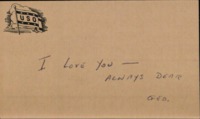 USO
I LOVE YOU —
ALWAYS DEAR
GEO.